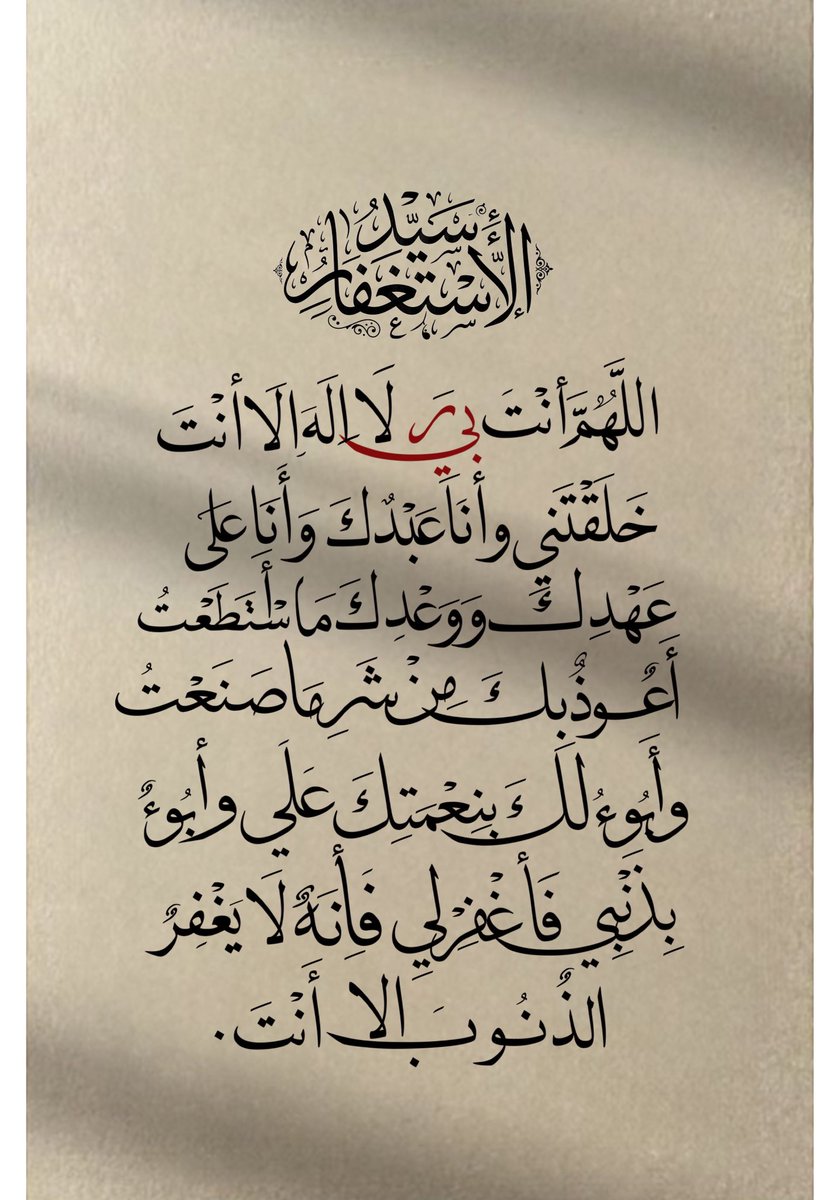 سَيِّدُ
الإِسْتِغْفَارِ
اللَّهُمَّ أنْتَ رَبي لَا اِلَهَ اِلَا أنْتَ
خَلَقْتَني وأنَا عَبْدُكَ وَأَنَا عَلَى
عَهْدِكَ وَوَعْدِكَ مَا سْتَطَعْتُ
أَعُوذُ بكَ مِنْ شَرِ مَا صَنَعْتُ
وأَبُوءُ لَكَ بِنِعْمَتِكَ عَلَي وأبُوءُ
بِذَنْبِي فَأغْفِرْلِي فَأِنَهُ لَا يَغْفِرُ
الذُنُوبَ اِلا أَنْتَ.